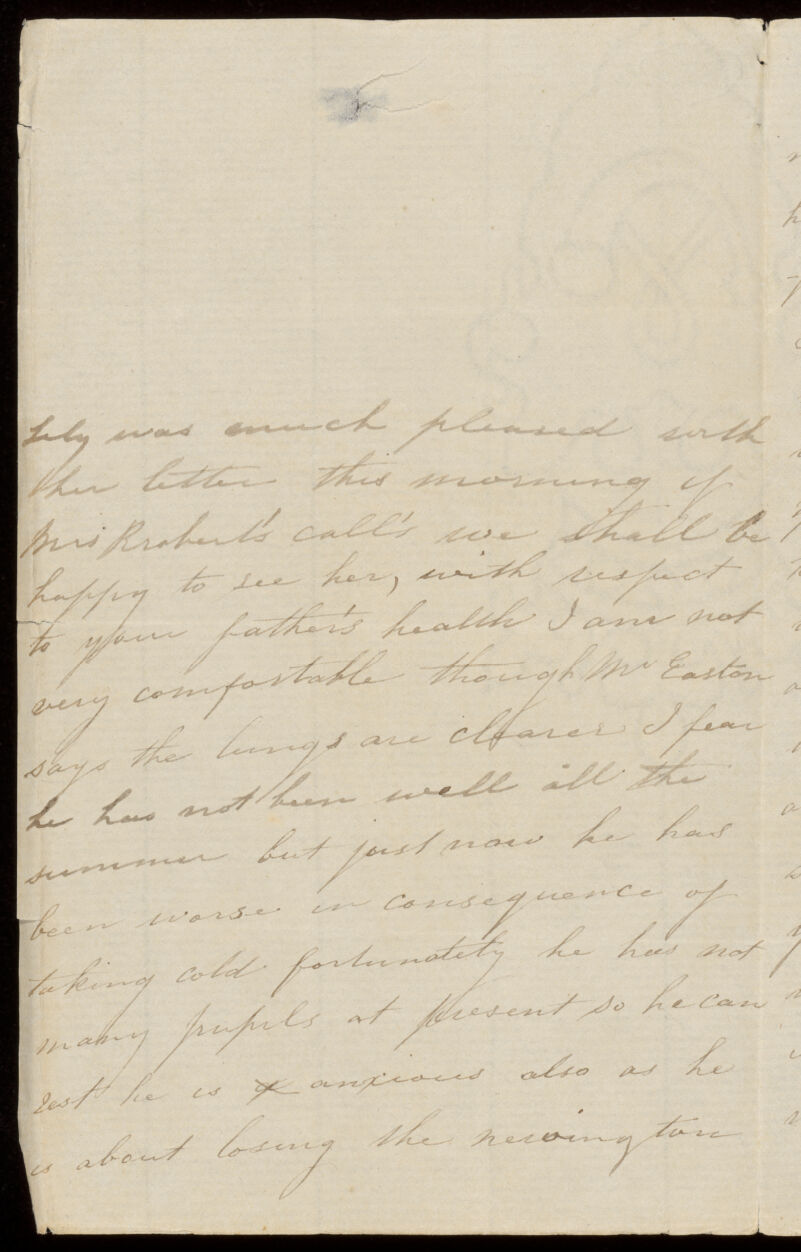 Lily was much pleased with
her letter this morning if
Mrs Rroberts's call's we shall be
happy to see her, with respect
to your father's health I am not
very comfortable though Mr Easton
says the lungs are clearer I fear
he has not been well all the
summer but just now he has
been worse in consequence of
taking cold fortunately he has not
many pupils at present so he can
rest he is anxious also as he
is about losing the newington